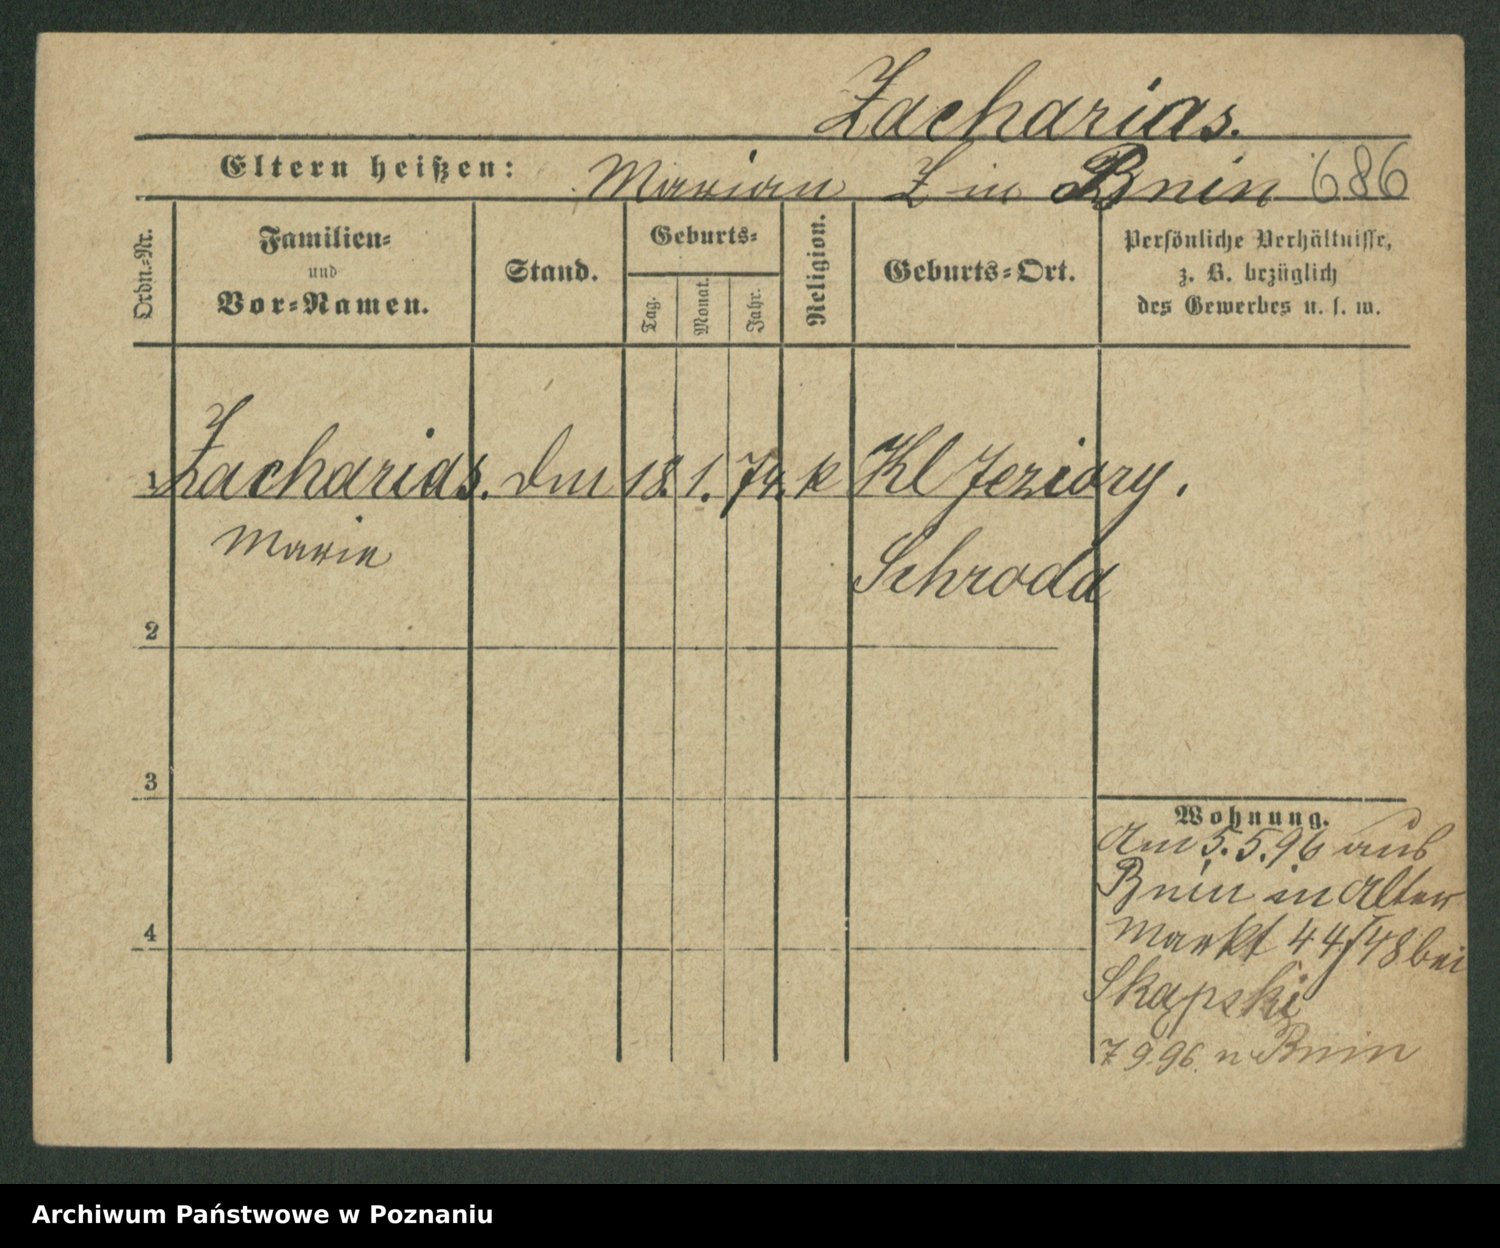 Zacharias.
Eltern heißen: Marian Z in Bnin 686
Ordn.-Nr.
Familien-
und
Vor-Namen.
Stand.
Geburts-
Tag.
Monat.
Jahr.
Religion.
Geburts-Ort.
Persönliche Verhältnisse,
z. B. bezüglich
des Gewerbes u. s. w.
1 Zacharias. Dm 18. 1. 74. k Kl Jeziory.
Marie
Schroda
2
3
4
Wohnung.
Am 5.5.96 aus
Bnin in Alter
Markt 44/48 bei
Skapski
7 9.96. n Bnin
Archiwum Państwowe w Poznaniu